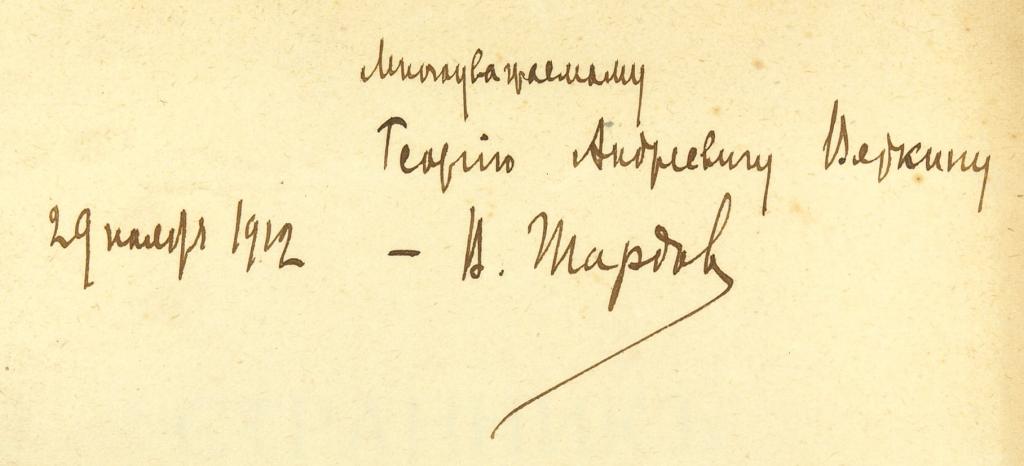 Многоуважаемому
Георгію Андреевичу Вяткину
29 ноября 1912 – В. Тардов